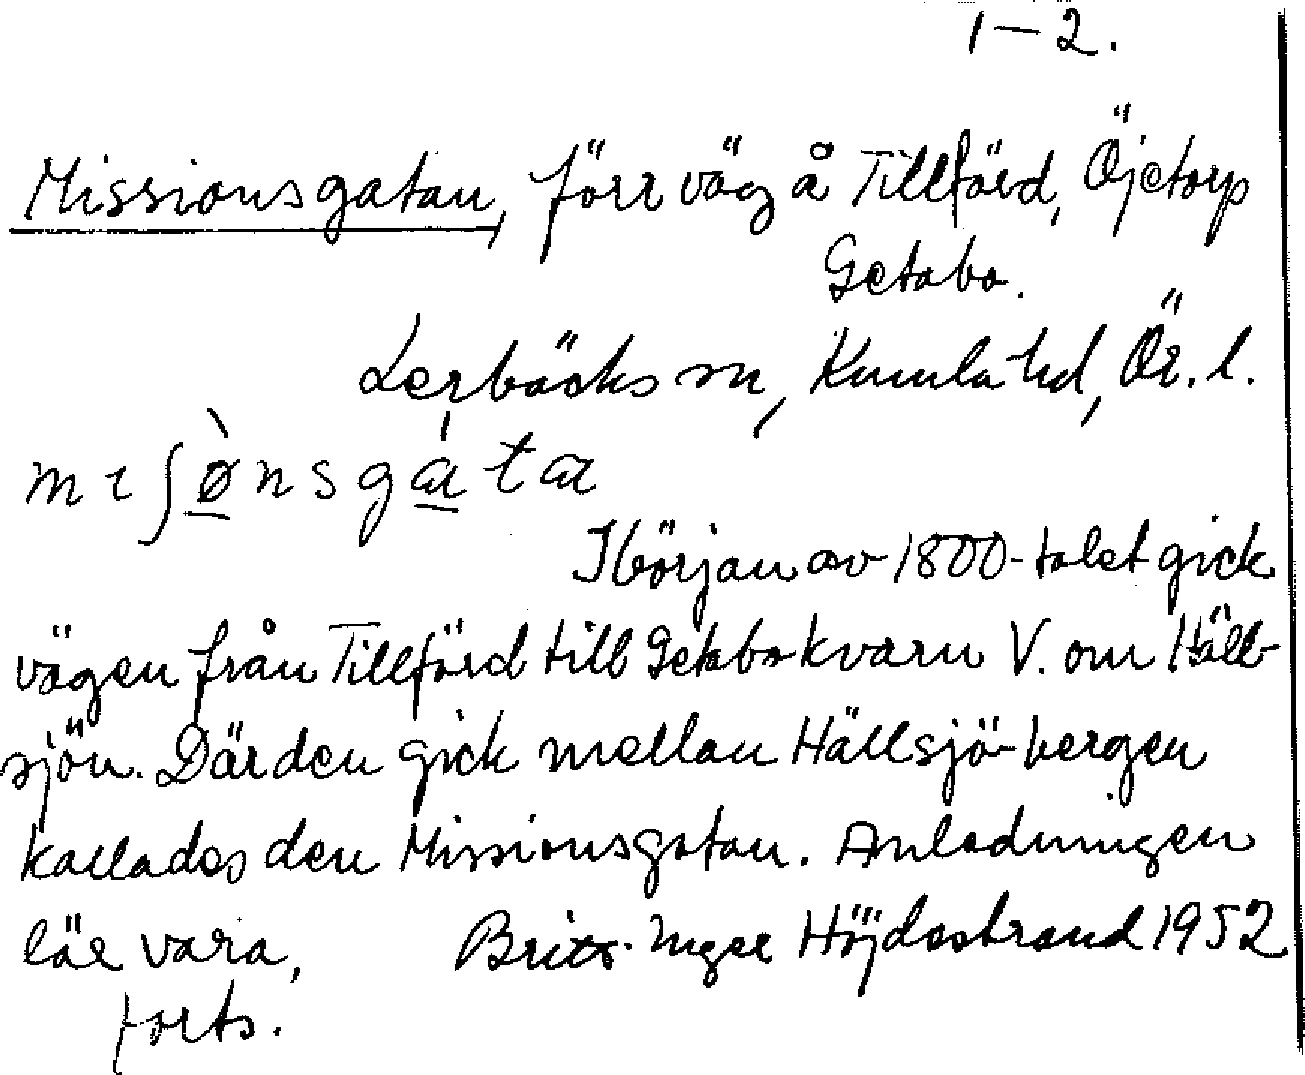 1-2.
Missionsgatan, förr väg å Tillförd, Öjetorp
Getabo.
Lerbäcks sn, Kumla hd, Ör. l.
mɪʃø̀nsgátɑ
I början av 1800-talet gick
vägen från Tillförd till Getabo kvarn V. om Häll-
sjön. Där den gick mellan Hällsjö-bergen
kallades den Missionsgatan. Anledningen
lär vara,
Britt-Inger Höjdestrand 1952
forts.